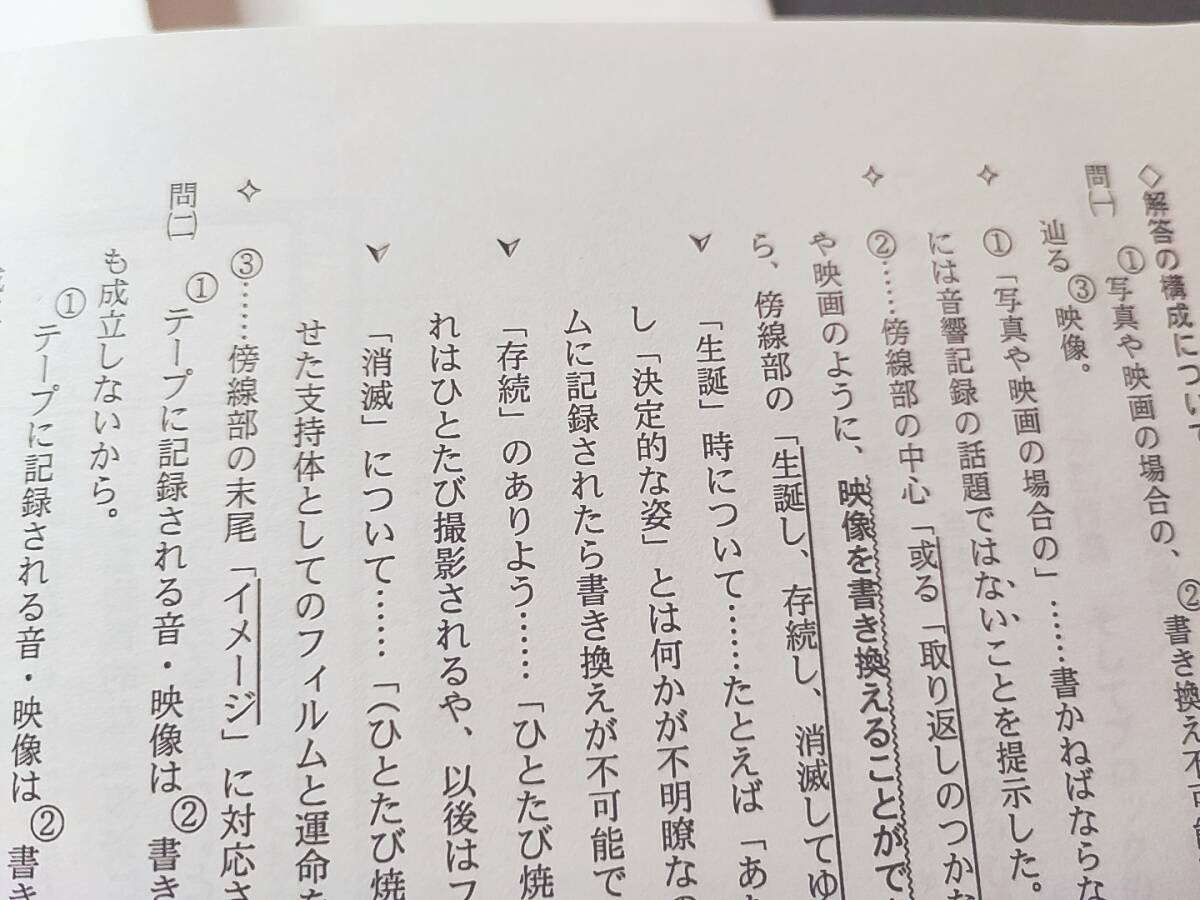 ◇解答の構成について
問㈠
①写真や映画の場合の、②書き換え不可能
辿る③映像。
✧ ①「写真や映画の場合の」……書かねばならな
には音響記録の話題ではないことを提示した。
✧ ②……傍線部の中心「或る「取り返しのつかな
や映画のように、映像を書き換えることがで
ら、傍線部の「生誕し、存続し、消滅してゆ
「生誕」時について……たとえば「あ
し「決定的な姿」とは何かが不明瞭なの
ムに記録されたら書き換えが不可能で
「存続」のありよう……「ひとたび焼
れはひとたび撮影されるや、以後はフ
「消滅」について……「（ひとたび焼
せた支持体としてのフィルムと運命を
✧ ③……傍線部の末尾「イメージ」に対応さ
問㈡
①テープに記録される音・映像は②書き
も成立しないから。
①テープに記録される音・映像は②書き